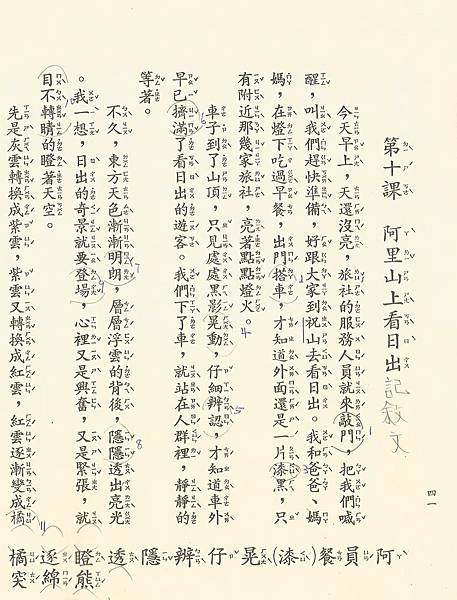 四一
第十課 阿里山上看日出 記敘文
今天早上，天還沒亮，旅社的服務人員就來敲門，把我們喊
醒，叫我們趕快準備，好跟大家到祝山去看日出。我和爸爸、媽
媽，在燈下吃過早餐，出門搭車，才知道外面還是一片漆黑，只
有附近那幾家旅社，亮著點點燈火。
車子到了山頂，只見處處黑影晃動，仔細辨認，才知道車外
早已擠滿了看日出的遊客。我們下了車，就站在人群裡，靜靜的
等著。
不久，東方天色漸漸明朗，層層浮雲的背後，隱隱透出亮光
。我一想，日出的奇景就要登場，心裡又是興奮，又是緊張，就
目不轉睛的瞪著天空。
先是灰雲轉換成紫雲，紫雲又轉換成紅雲，紅雲逐漸變成橘
阿員餐(漆)晃仔辨隱透瞪逐橘
熊綿突